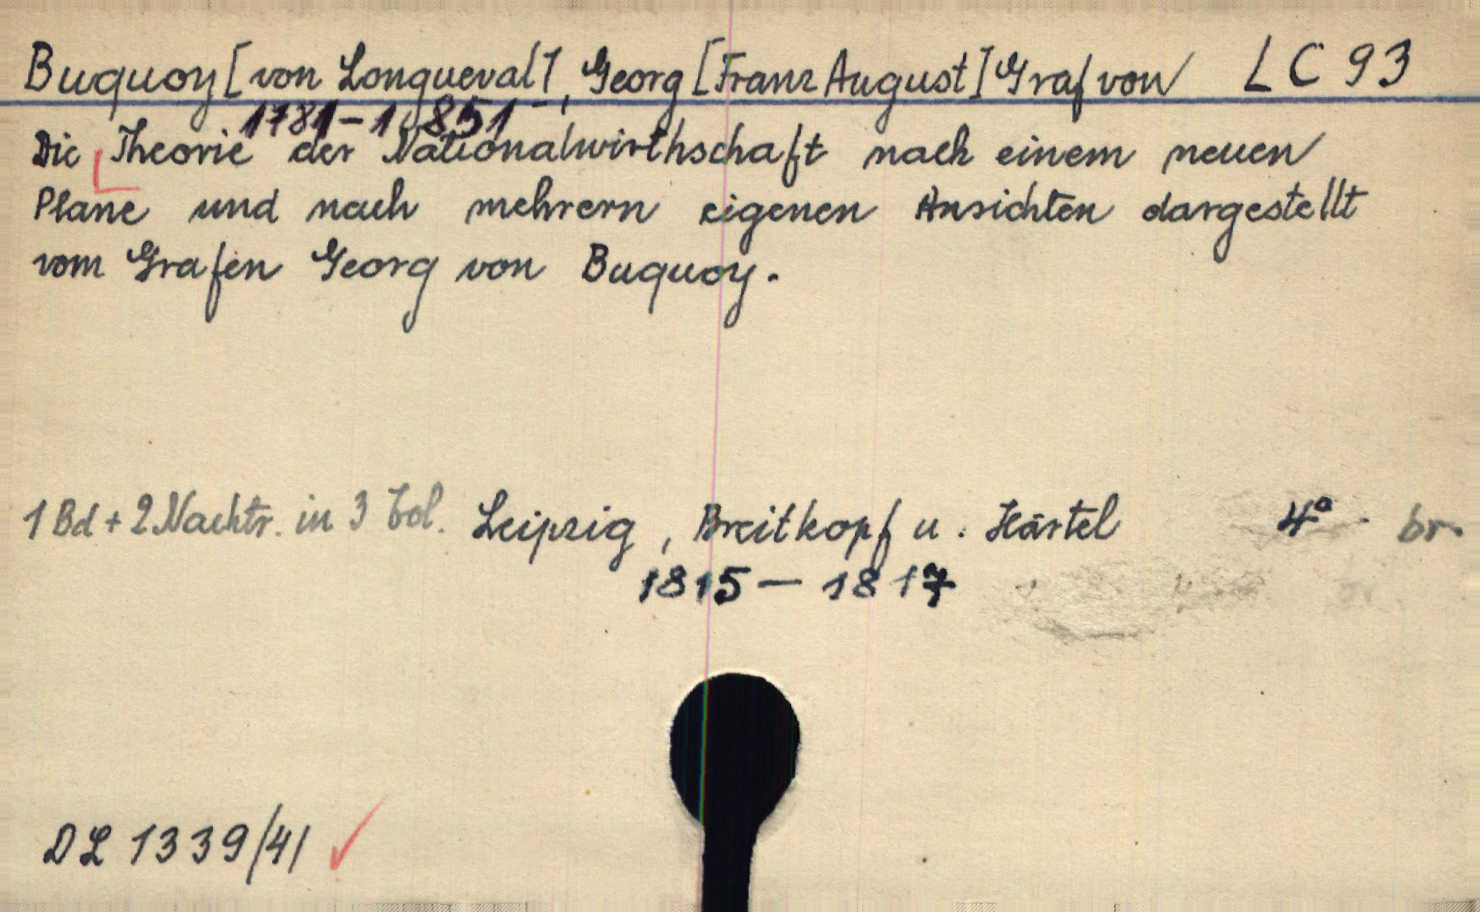 Buquoy [von Longueval], Georg [Franz August] Graf von LC 93
1781-1851
Die Theorie der Nationalwirthschaft nach einem neuen
Plane und nach mehrern eigenen Ansichten dargestellt
vom Grafen Georg von Buquoy.
1 Bd + 2 Nachtr. in 3 Vol. Leipzig, Breitkopf u. Härtel 4° br.
1815-1817
DL 1339/41